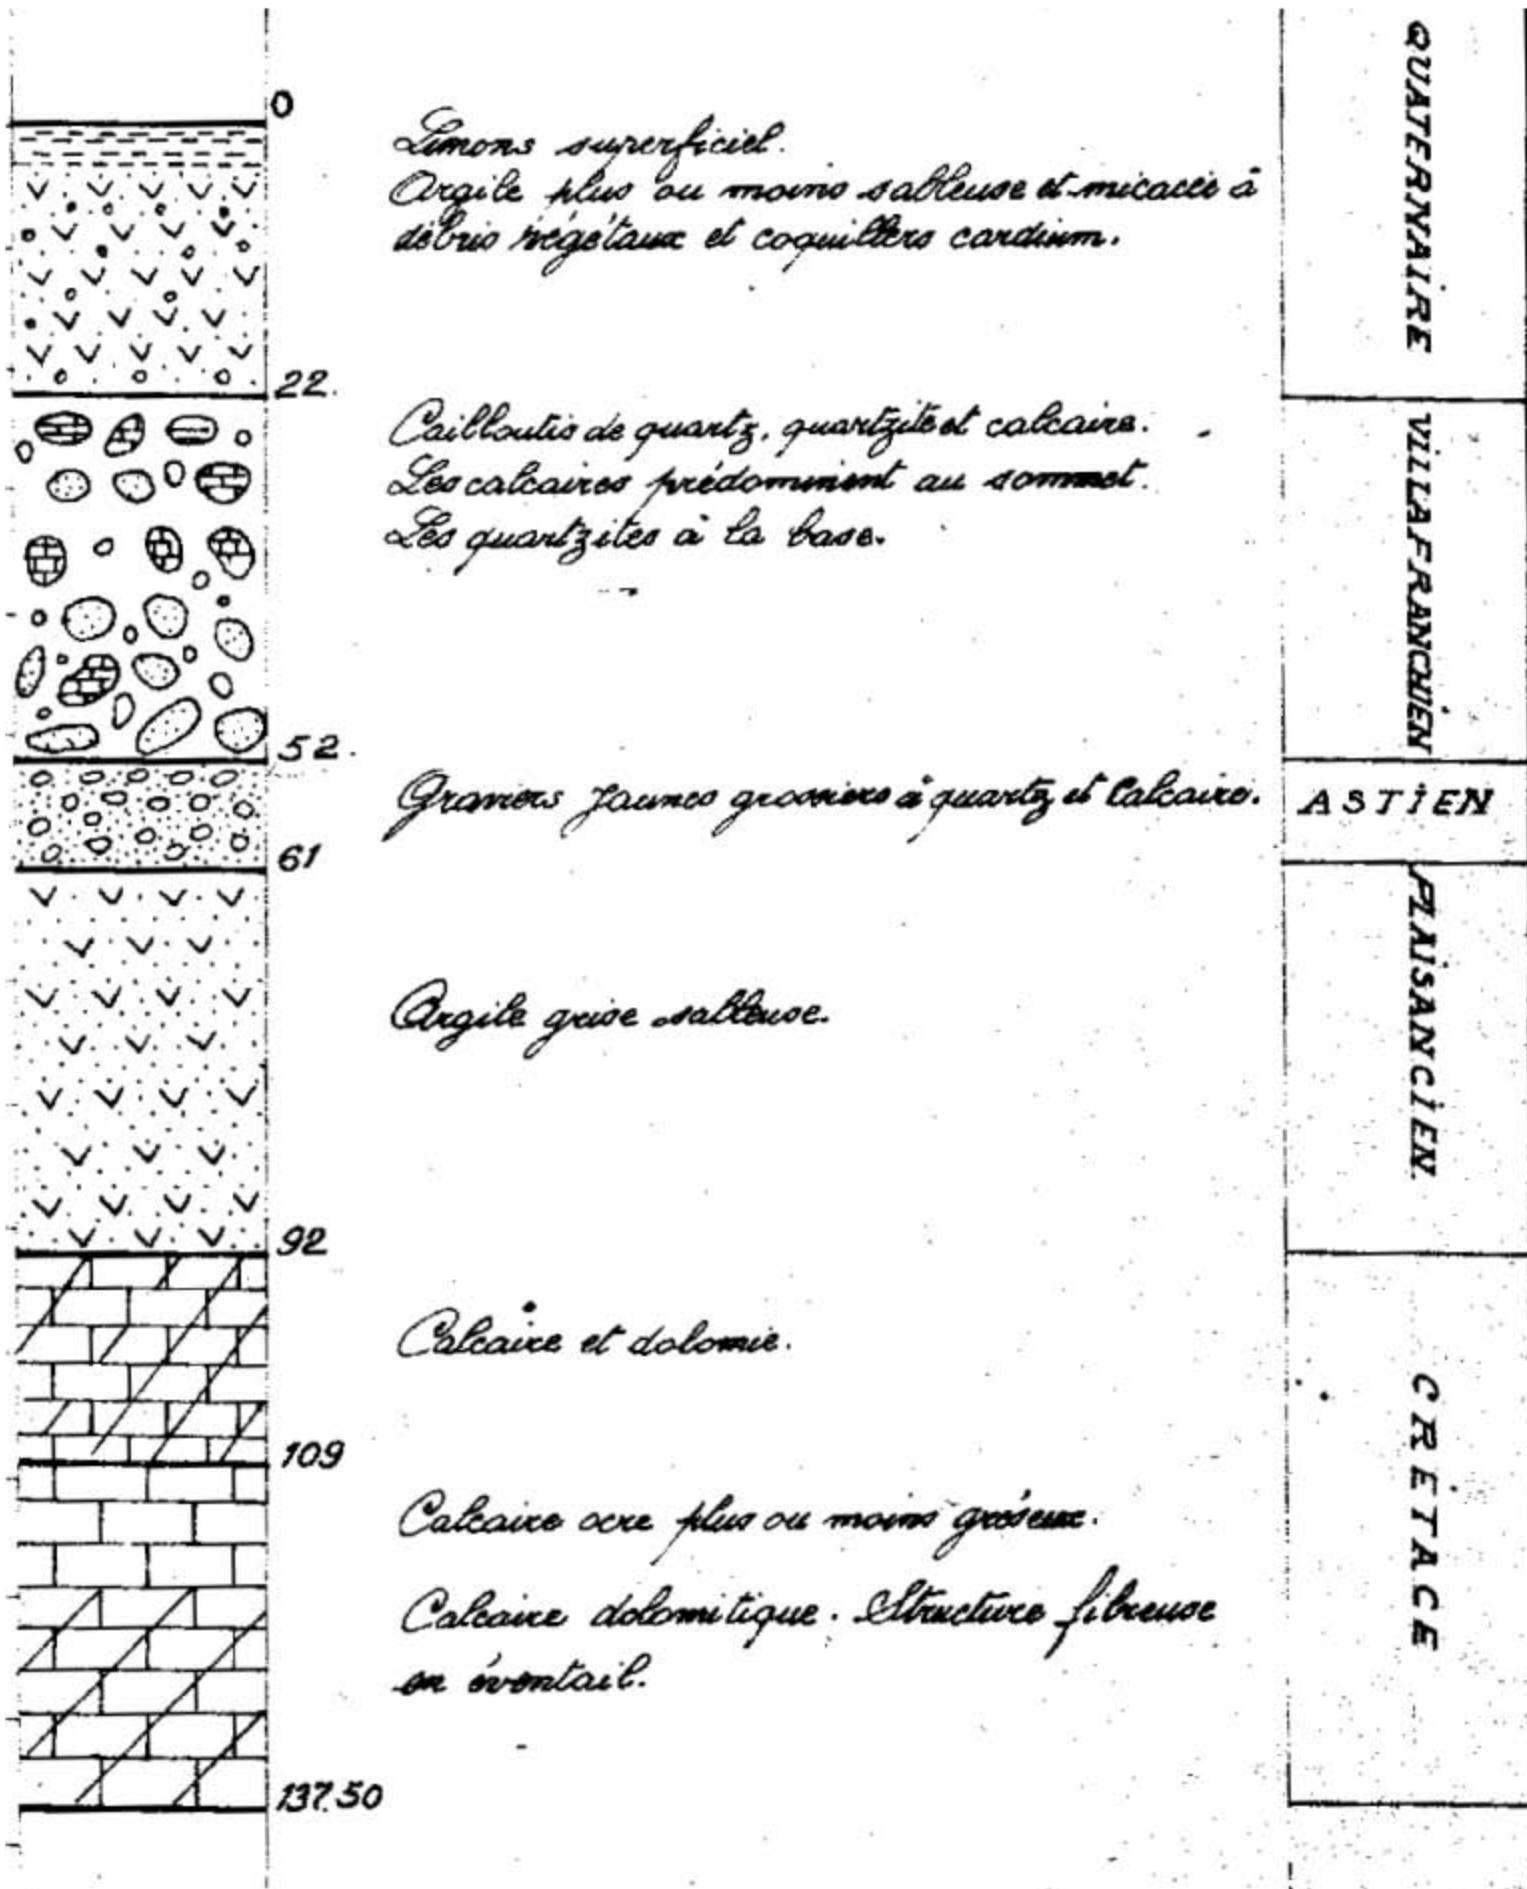 0
QUATERNAIRE
Limons superficiel.
Argile plus ou moins sableuse et micacée à
débris végétaux et coquillers cardium.
22.
VILLAFRANCHIEN
Cailloutis de quartz, quartzite et calcaire.
Les calcaires prédominent au sommet.
Les quartzites à la base.
52.
Graviers jaunes grossiers à quartz et Calcaire.
ASTIEN
61
PLAISANCIEN.
Argile grise sableuse.
92
Calcaire et dolomie.
CRETACE
109
Calcaire ocre plus ou moins gréseux.
Calcaire dolomitique. Structure fibreuse
en éventail.
137.50